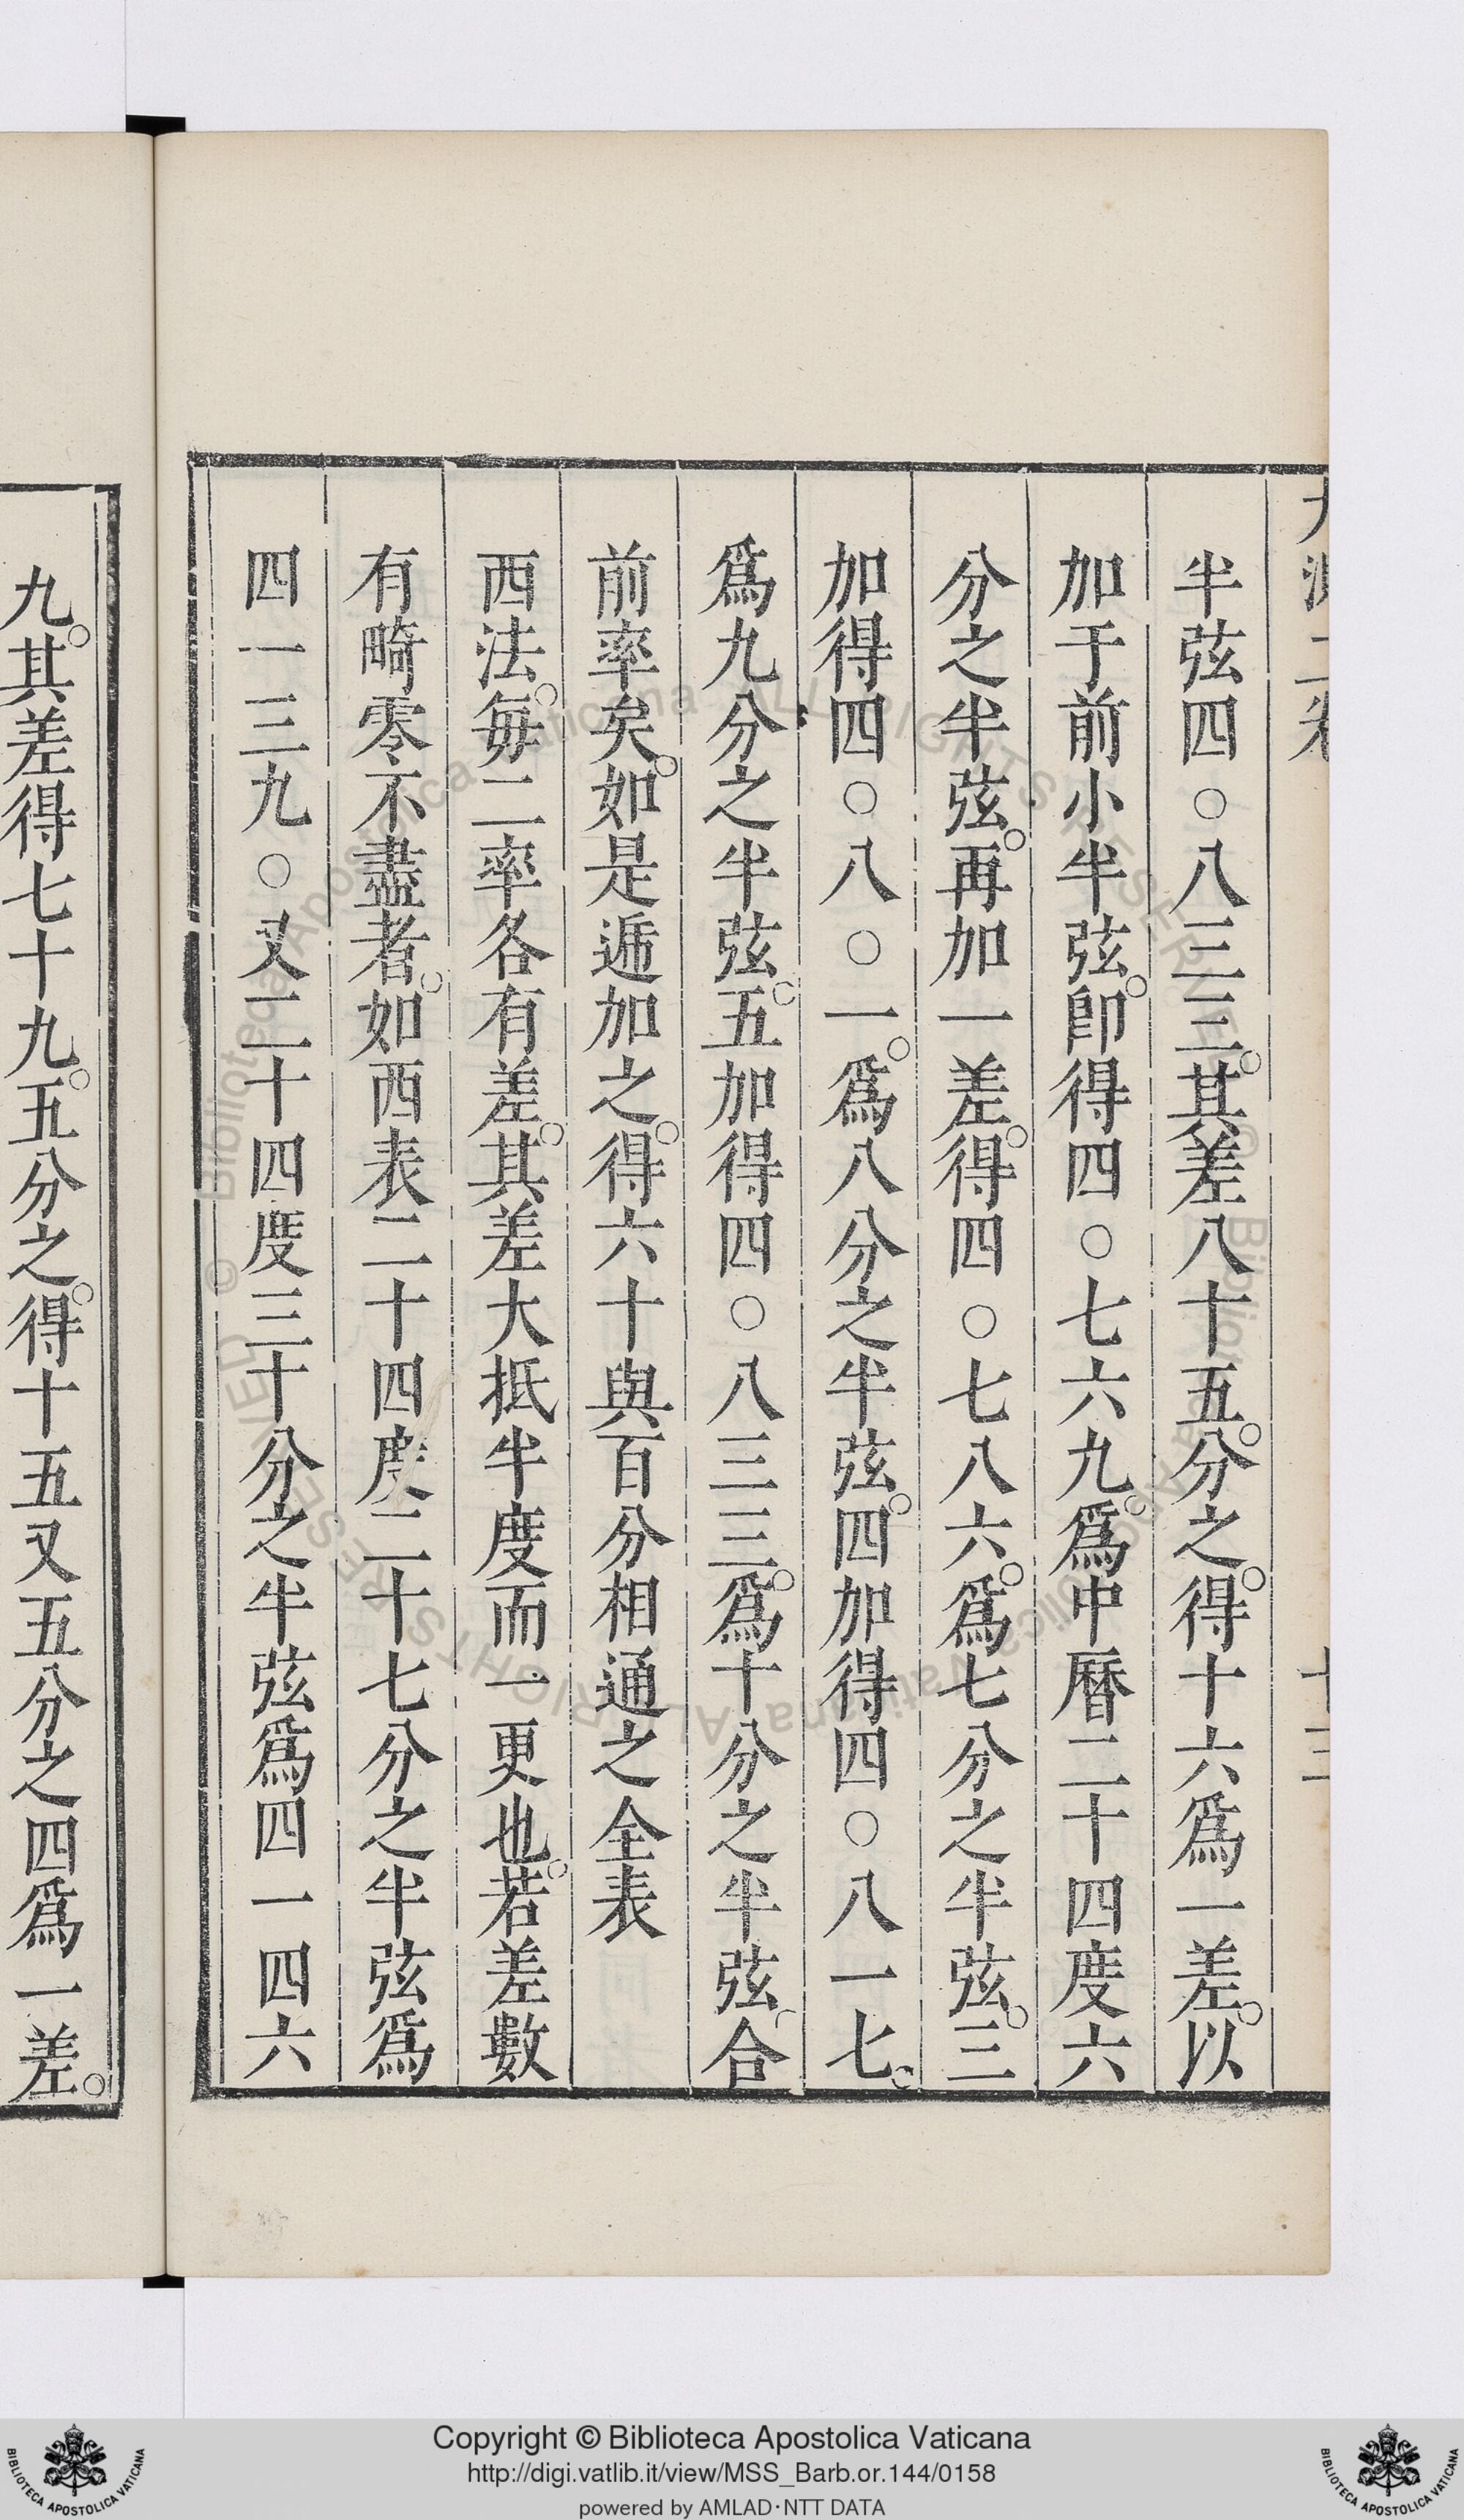 半弦四○八三三。其差八十五。分之。得十六爲一差。以
加于前小半弦。卽得四○七六九。爲中曆二十四度六
分之半弦。再加一差。得四○七八六。爲七分之半弦。三
加得四○八○一。爲八分之半弦。四加得四○八一七。
爲九分之半弦。五加得四○八三三。爲十分之半弦。合
前率矣。如是遞加之。得六十與百分相通之全表
西法。每二率各有差。其差大抵半度而一更也。若差數
有畸零不盡者。如西表二十四度二十七分之半弦爲
四一三九○又二十四度三十分之半弦爲四一四六
九。其差得七十九。五分之。得十五又五分之四爲一差。
Copyright © Biblioteca Apostolica Vaticana
http://digi.vatlib.it/view/MSS_Barb.or.144/0158
powered by AMLAD·NTT DATA